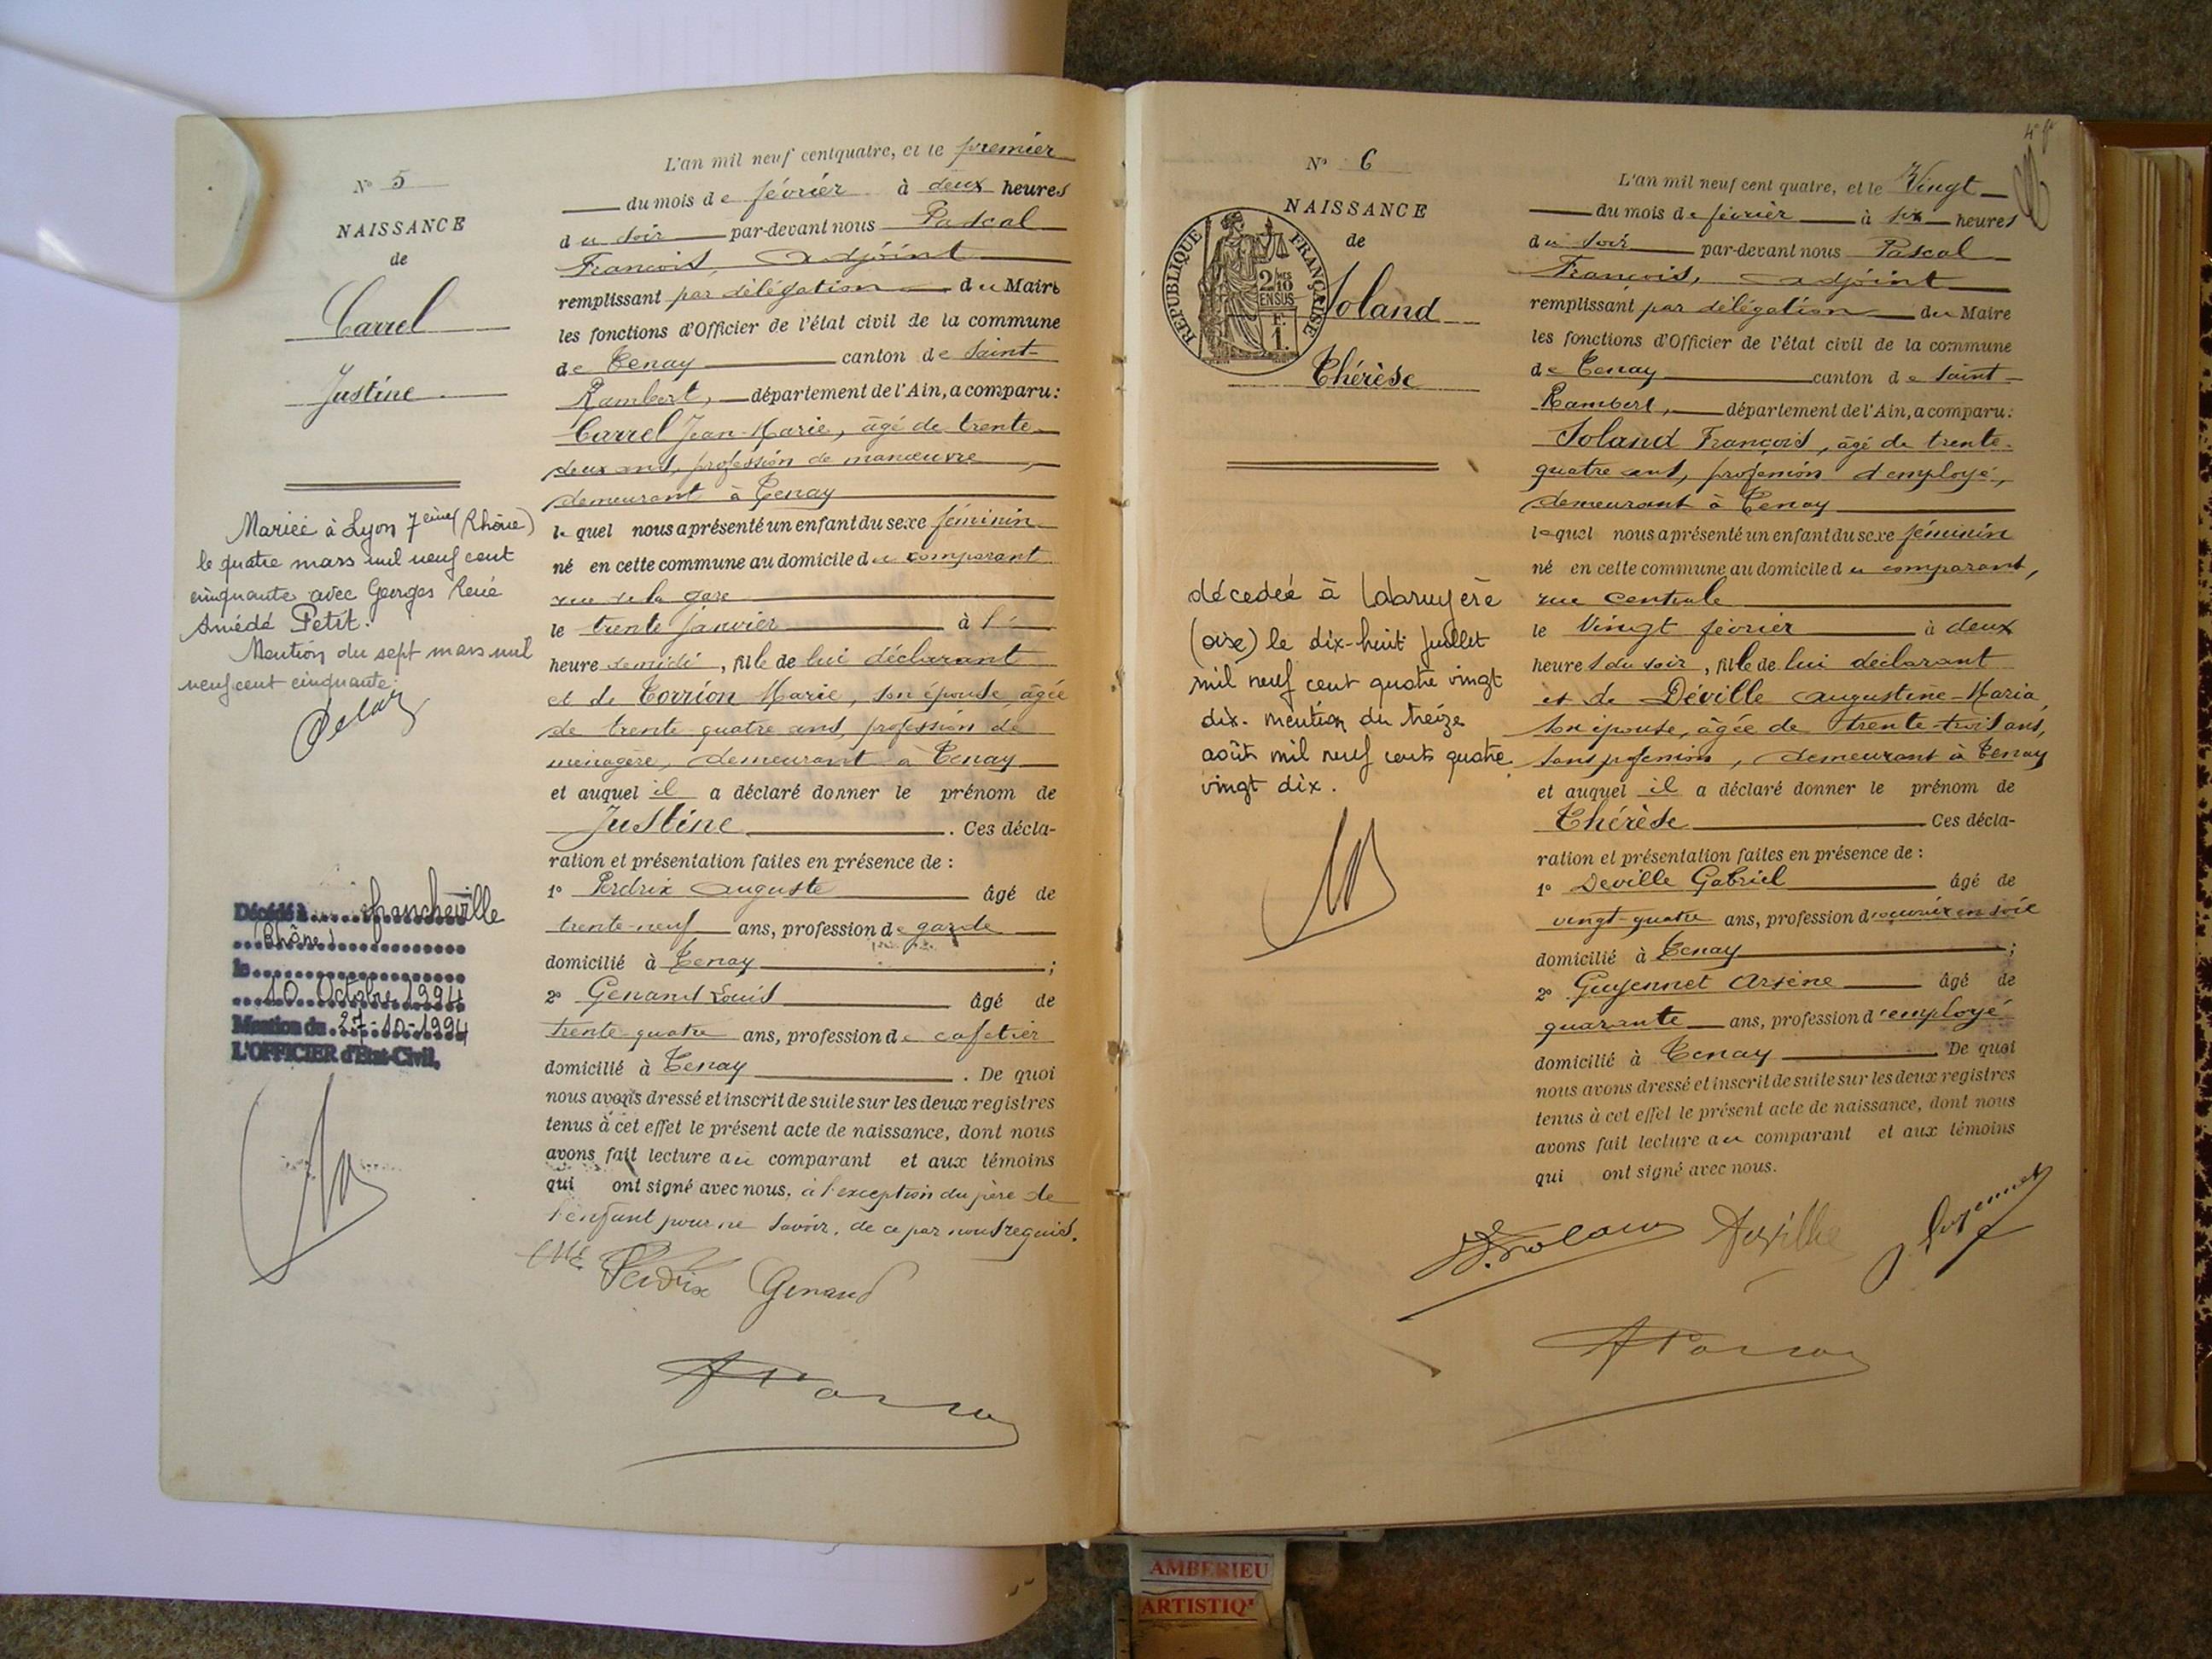 N° 5
NAISSANCE
de
Carrel
Justine
Mariée à Lyon 7ème (Rhône)
le quatre mars mil neuf cent
cinquante avec Georges René
Amédé Petit.
Mention du sept mars mil
neuf cent cinquante.
Décédé à Francheville
Rhône
le
10 Octobre 1994
Mention du 27-10-1994
L'OFFICIER d'Etat-Civil,
L'an mil neuf cent quatre, et le premier
du mois de février à deux heures
du soir par-devant nous Pascal
François, adjoint
remplissant par délégation du Maire
les fonctions d'Officier de l'état civil de la commune
de Tenay canton de Saint-
Rambert, département de l'Ain, a comparu:
Carrel Jean-Marie, âgé de trente
deux ans, profession de manœuvre,
demeurant à Tenay
lequel nous a présenté un enfant du sexe féminin
né en cette commune au domicile du comparant
rue de la gare
le trente janvier à l'
heure de midi, fille de lui déclarant
et de Torrion Marie, son épouse, âgée
de trente quatre ans, profession de
ménagère, demeurant à Tenay
et auquel il a déclaré donner le prénom de
Justine. Ces décla-
ration et présentation faites en présence de :
1° Perdrix Auguste âgé de
trente-neuf ans, profession de garde
domicilié à Tenay;
2° Genand Louis âgé de
trente-quatre ans, profession de cafetier
domicilié à Tenay. De quoi
nous avons dressé et inscrit de suite sur les deux registres
tenus à cet effet le présent acte de naissance, dont nous
avons fait lecture au comparant et aux témoins
qui ont signé avec nous, à l'exception du père de
l'enfant pour ne savoir, de ce par nous requis.
Perdrix Genand
N° 6
NAISSANCE
de
Soland
Thérèse
REPUBLIQUE FRANÇAISE
2/10 EN SUS
F. 1.
décedée à Labruyère
(oise) le dix-huit Juillet
mil neuf cent quatre vingt
dix. mention du treize
août mil neuf cent quatre
vingt dix.
L'an mil neuf cent quatre, et le Vingt
du mois de février à six heures
du soir par-devant nous Pascal
François, adjoint
remplissant par délégation du Maire
les fonctions d'Officier de l'état civil de la commune
de Tenay canton de Saint-
Rambert, département de l'Ain, a comparu:
Soland François, âgé de trente-
quatre ans, profession d'employé,
demeurant à Tenay
lequel nous a présenté un enfant du sexe féminin
né en cette commune au domicile du comparant,
rue centrale
le Vingt février à deux
heures du soir, fille de lui déclarant
et de Déville Augustine-Maria,
son épouse, âgée de trente-trois ans,
sans profession, demeurant à Tenay
et auquel il a déclaré donner le prénom de
Thérèse Ces décla-
ration et présentation faites en présence de :
1° Deville Gabriel âgé de
vingt-quatre ans, profession d'ouvrier en soie
domicilié à Tenay;
2° Guyennet Arsène âgé de
quarante ans, profession d'employé
domicilié à Tenay De quoi
nous avons dressé et inscrit de suite sur les deux registres
tenus à cet effet le présent acte de naissance, dont nous
avons fait lecture au comparant et aux témoins
qui ont signé avec nous.
Deville Guyennet
AMBERIEU
ARTISTIQ